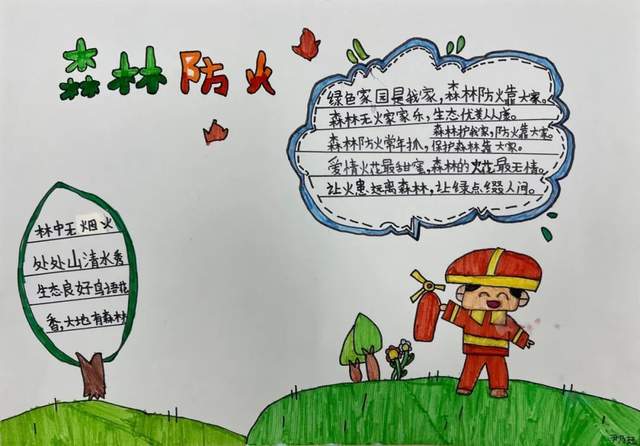 森林防火
绿色家园是我家，森林防火靠大家。
森林无火家家乐，生态优美人人夸。
森林护我家，防火靠大家。
森林防火常年抓，保护森林靠大家。
爱情火花最甜蜜，森林的火花最无情。
让火患远离森林，让绿点缀人间。
林中无烟火
处处山清水秀
生态良好鸟语花
香，大地有森林